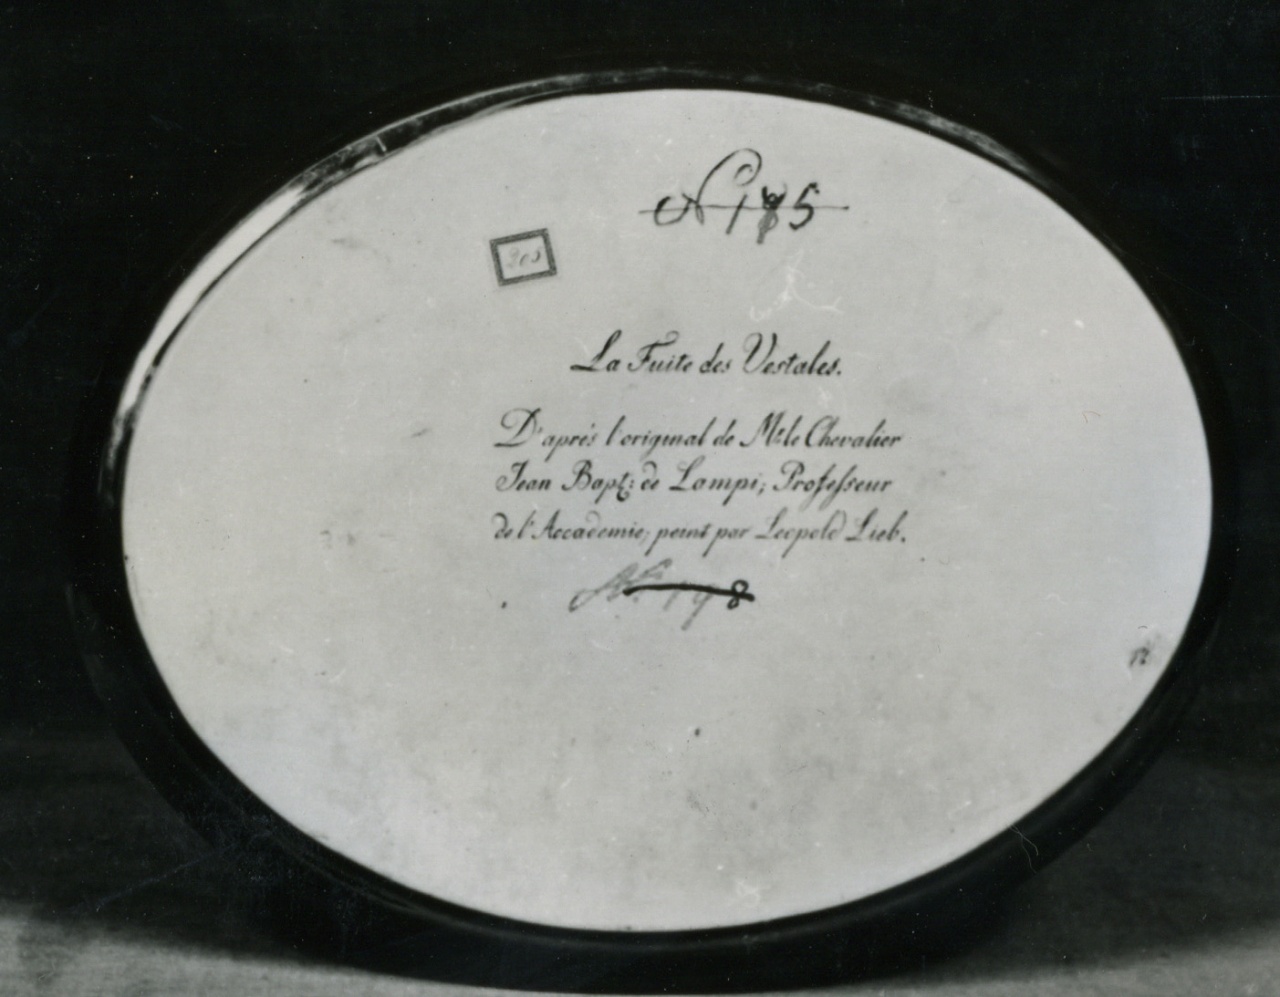 N 185
205
La Fuite des Vestales.
D'aprés l'original de Mr. le Chevalier
Jean Bapt: de Lampi; Professeur
de l'Accademie; peint par Leopold Lieb.
No. 198